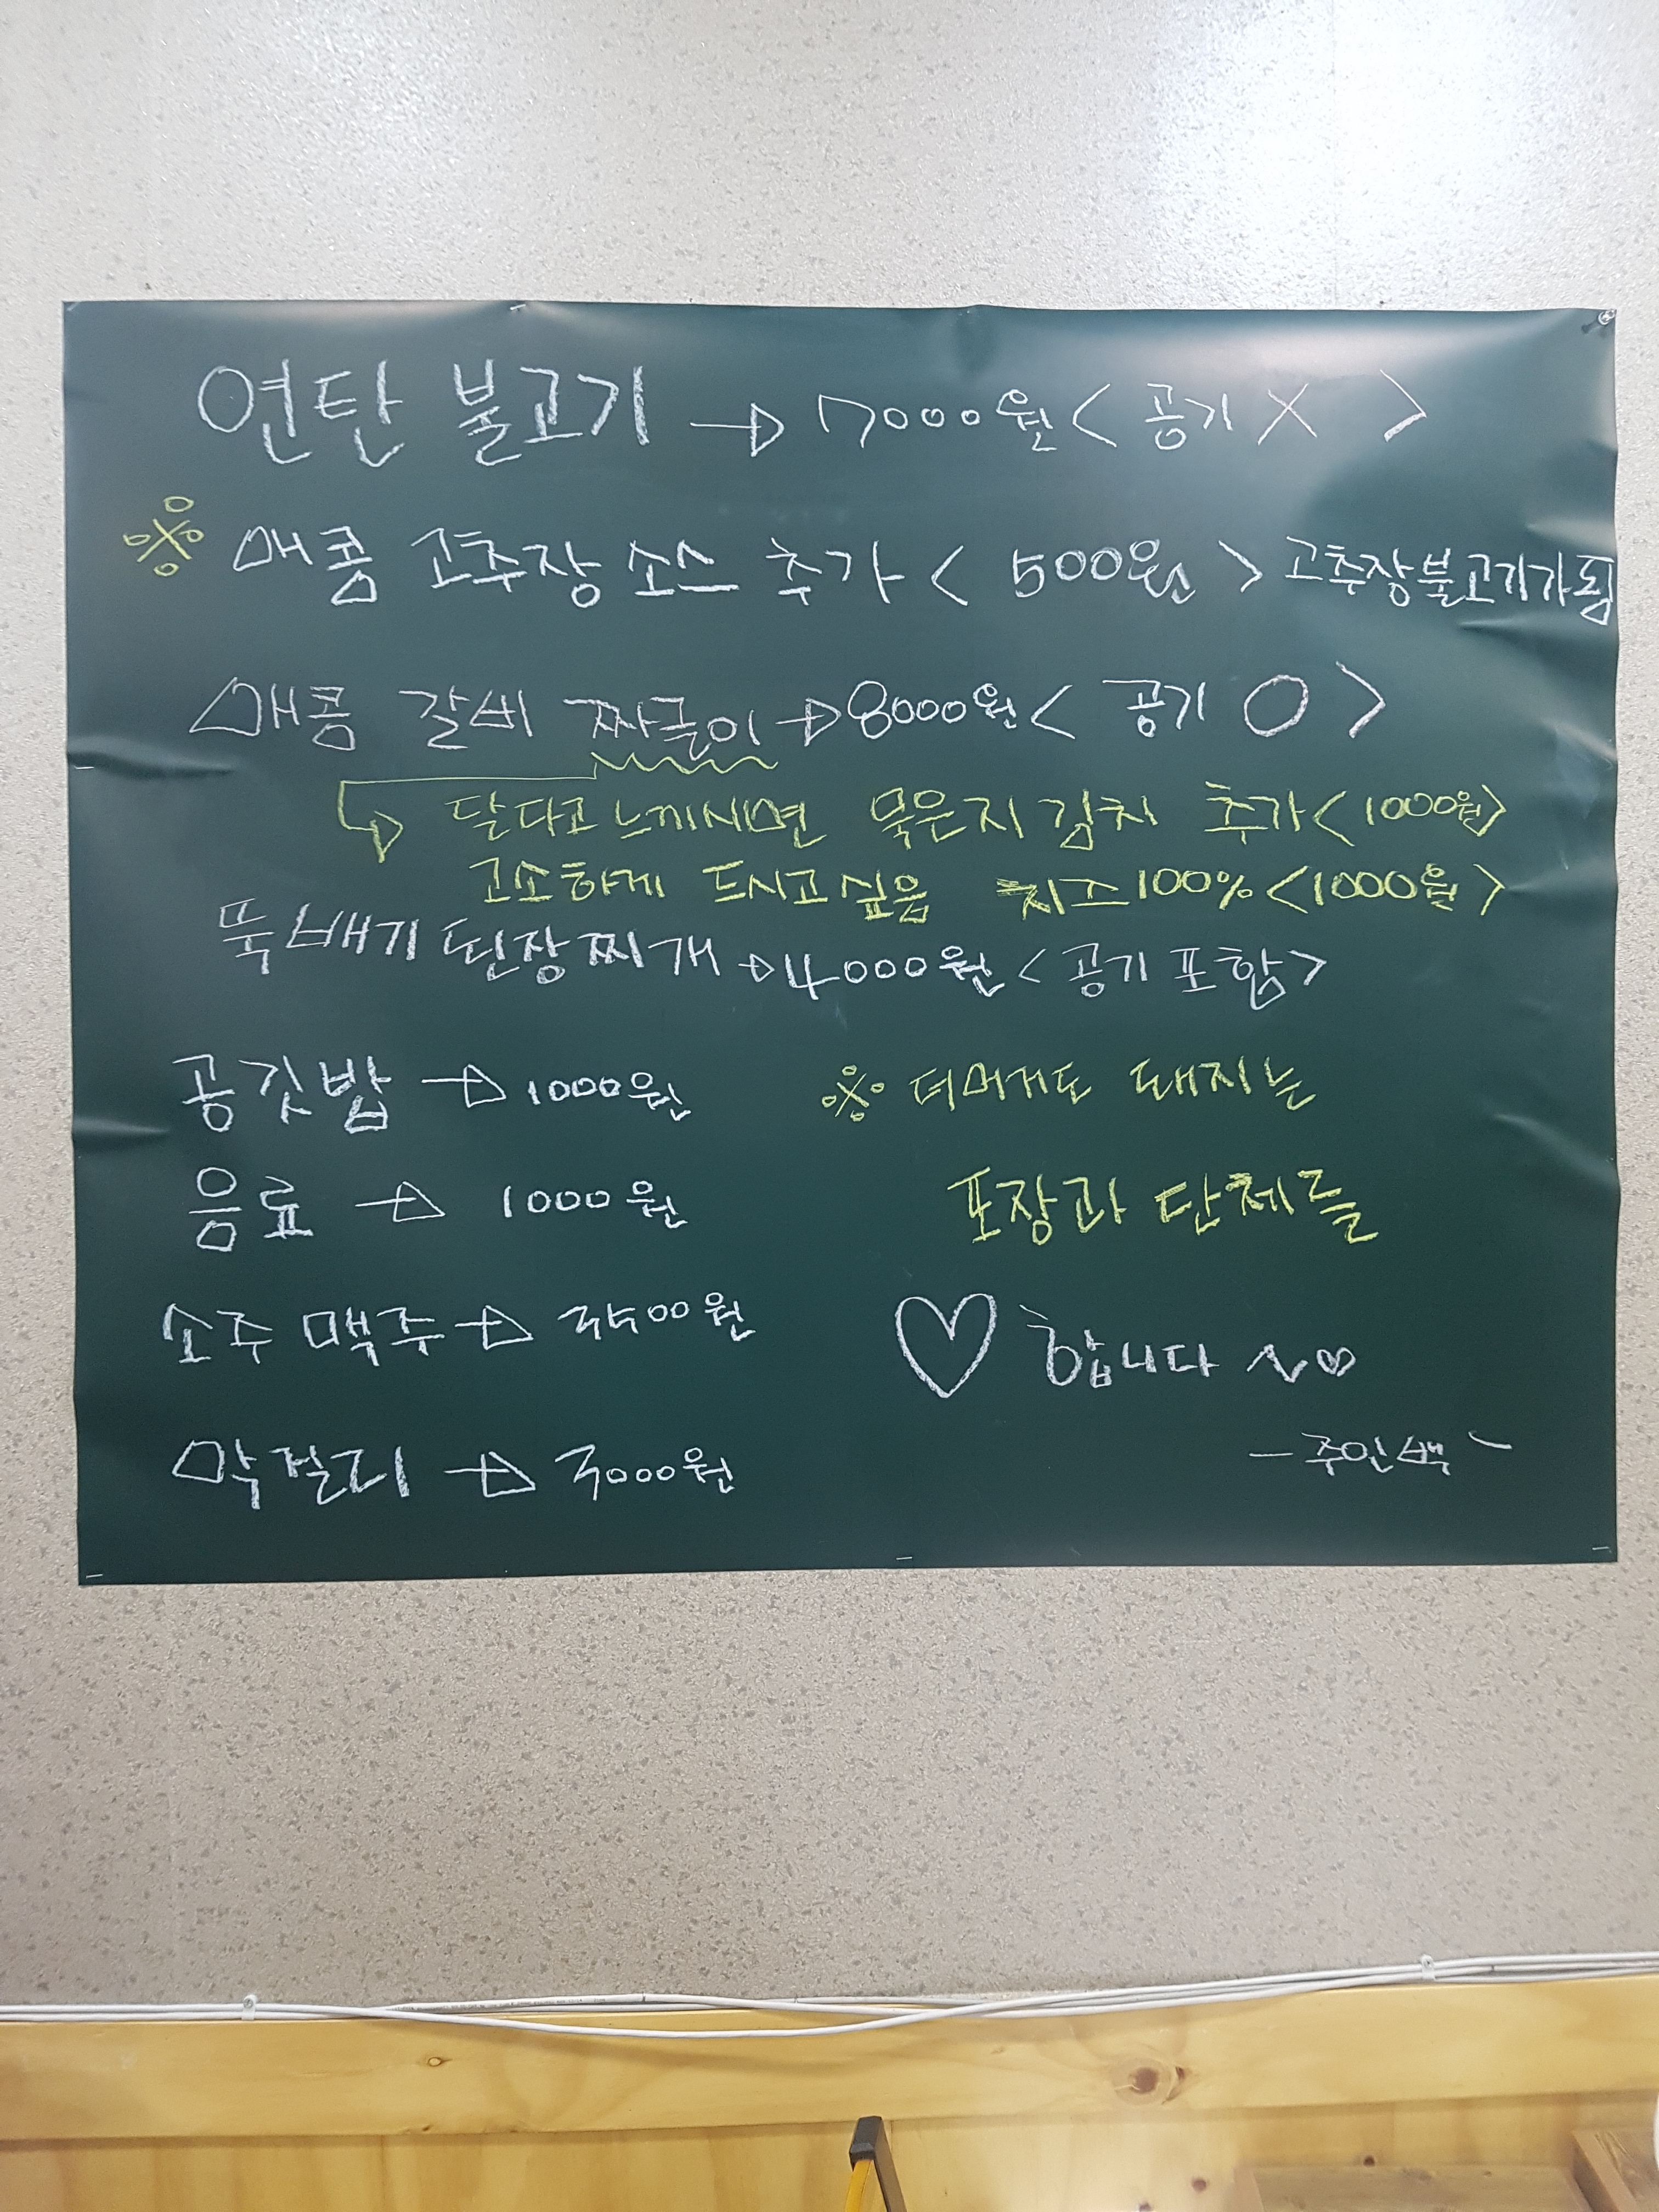 연탄 불고기 → 7000원 < 공기 X >
※ 매콤 고추장 소스 추가 < 500원 > 고추장불고기가됨
매콤 갈비 짜글이 → 8000원 < 공기 O >
↳ 달다고 느끼시면 묵은지 김치 추가 <1000원>
고소하게 드시고 싶음 치즈 100% <1000원>
뚝배기 된장찌개 → 4000원 <공기 포함>
공깃밥 → 1000원
음료 → 1000원
소주 맥주 → 3500원
막걸리 → 3000원
※ 더머거도 돼지는
포장과 단체를
♡ 합니다 ~♡
- 주인백 -